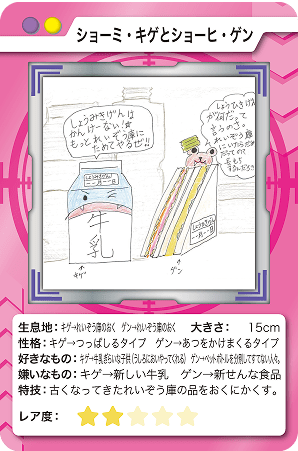 ショーミ・キゲとショーヒ・ゲン
しょうみきげんは
かんけーない!
もっとれいぞう庫に
ためてやるぜ!!
しょうひきげん
が何だって
いうのさ。
れいぞう庫
しょうみきげん
一月一日
牛乳
キゲ
一月一日
ゲン
生息地:キゲ→れいぞう庫のおく ゲン→れいぞう庫のおく 大きさ: 15cm
性格:キゲ→つっぱしるタイプ ゲン→あつをかけまくるタイプ
好きなもの:キゲ→牛乳ぎらいな子供(うしろにおいやってくれる) ゲン→ペットボトルを分別してすてない人々。
嫌いなもの:キゲ→新しい牛乳 ゲン→新せんな食品
特技:古くなってきたれいぞう庫の品をおくにかくす。
レア度: